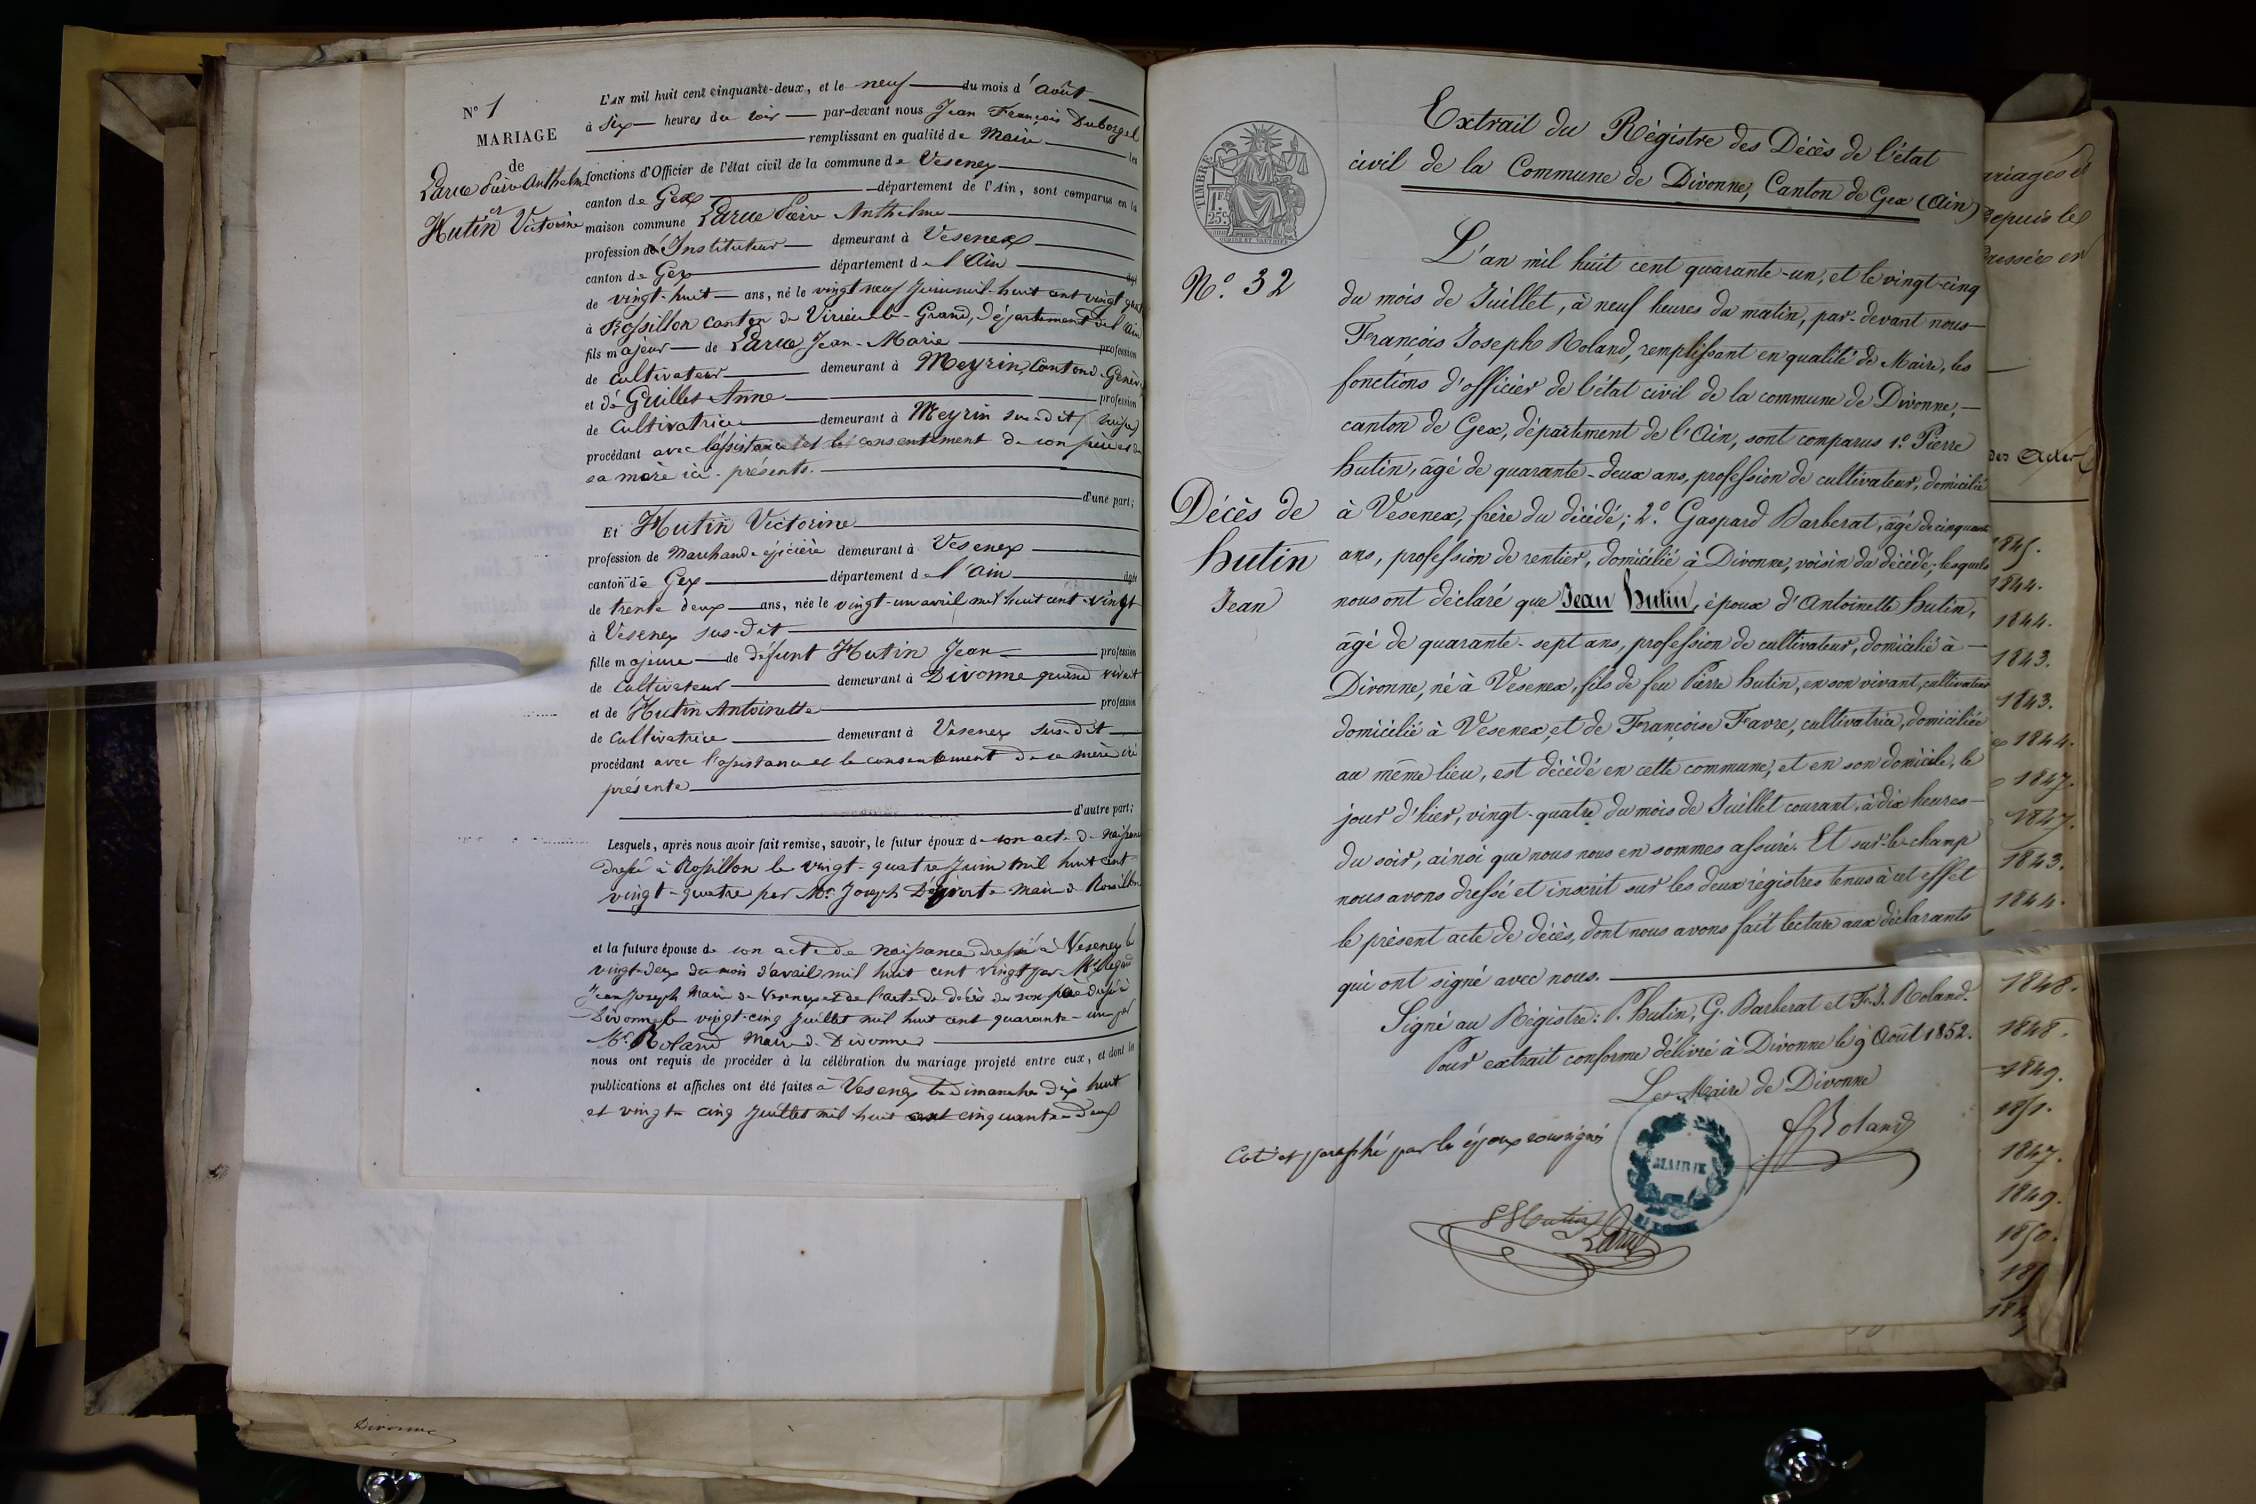 N° 1
MARIAGE
de
Larue Pierre Anthelme
et
Hutin Victorine
L'AN mil huit cent cinquante-deux, et le neuf du mois d'Août
à Six heures du soir par-devant nous Jean François Duborgel
remplissant en qualité de Maire les
fonctions d'Officier de l'état civil de la commune de Vesenex
canton de Gex département de l'Ain, sont comparus en la
maison commune Larue Pierre Anthelme
profession d'Instituteur demeurant à Vesenex
canton de Gex département de l'Ain âgé
de vingt-huit ans, né le vingt neuf Juin mil-huit cent vingt quatre
à Rossillon canton de Virieu-le-Grand, département de l'Ain
fils majeur de Larue Jean-Marie profession
de cultivateur demeurant à Meyrin, Canton de Genève
et de Guillet Anne profession
de Cultivatrice demeurant à Meyrin sus-dit (suisse)
procédant avec l'assistance et le consentement de son père et de
sa mère ici-présents.
d'une part;
Et Hutin Victorine
profession de Marchande épicière demeurant à Vesenex
canton de Gex département de l'Ain âgée
de trente deux ans, née le vingt-un avril mil huit cent-vingt
à Vesenex sus-dit
fille majeure de défunt Hutin Jean profession
de Cultivateur demeurant à Divonne quand vivait
et de Hutin Antoinette profession
de Cultivatrice demeurant à Vesenex sus-dit
procédant avec l'assistance et le consentement de sa mère ici
présente
d'autre part;
Lesquels, après nous avoir fait remise, savoir, le futur époux de son acte de naissance
dressé à Rossillon le vingt-quatre Juin mil huit cent
vingt-quatre par Mr. Joseph Maire de Rossillon
et la future épouse de son acte de naissance dressé à Vesenex le
vingt-deux du mois d'avril mil huit cent vingt par Mr.
Jean Joseph Maire de Vesenex et de l'acte de décès de son père dressé à
Divonne le vingt-cinq Juillet mil huit cent quarante-un par
Mr. Roland Maire de Divonne
nous ont requis de procéder à la célébration du mariage projeté entre eux, et dont les
publications et affiches ont été faites à Vesenex les dimanches dix huit
et vingt cinq Juillet mil huit cent cinquante deux
Divonne
Extrait du Régistre des Décès de l'état
civil de la Commune de Divonne, Canton de Gex (Ain)
TIMBRE
1F.
25c
N°. 32
Décès de
hutin
Jean
L'an mil huit cent quarante-un, et le vingt-cinq
du mois de Juillet, à neuf heures du matin, par-devant nous
François Joseph Roland, remplissant en qualité de Maire, les
fonctions d'officier de l'état civil de la commune de Divonne,
canton de Gex, département de l'Ain, sont comparus 1°. Pierre
hutin, âgé de quarante-deux ans, profession de cultivateur, domicilié
à Vesenex, frère du décédé; 2°. Gaspard Barberat, âgé de cinquante
ans, profession de rentier, domicilié à Divonne, voisin du décédé, lesquels
nous ont déclaré que Jean hutin, époux d'Antoinette hutin,
âgé de quarante-sept ans, profession de cultivateur, domicilié à
Divonne, né à Vesenex, fils de feu Pierre hutin, en son vivant, cultivateur
domicilié à Vesenex, et de Françoise Favre, cultivatrice, domiciliée
au même lieu, est décédé en cette commune, et en son domicile, le
jour d'hier, vingt-quatre du mois de Juillet courant, à dix heures
du soir, ainsi que nous nous en sommes assuré. Et sur-le-champ
nous avons dressé et inscrit sur les deux régistres tenus à cet effet
le présent acte de décès, dont nous avons fait lecture aux déclarants
qui ont signé avec nous.
Signé au Régistre: P. hutin, G. Barberat et F. J. Roland.
Pour extrait conforme délivré à Divonne le 9 Août 1852.
Le Maire de Divonne
Roland
Coté et paraphé par les époux soussignés
MAIRIE
Hutin
Larue
depuis les
des Actes
1845.
1844.
1844.
1843.
1843.
1844.
1847.
1847.
1843.
1844.
1848.
1848.
1849.
1851.
1847.
1849.
1850.